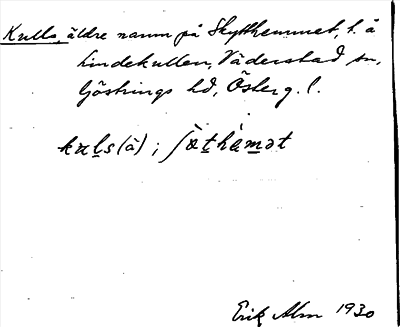 Kulls, äldre namn på Skytthemmet, t. å
Lindekullen, Väderstad sn,
Göstrings hd, Österg. l.
kuls(å); ʃöthämət
Erik Alm 1930